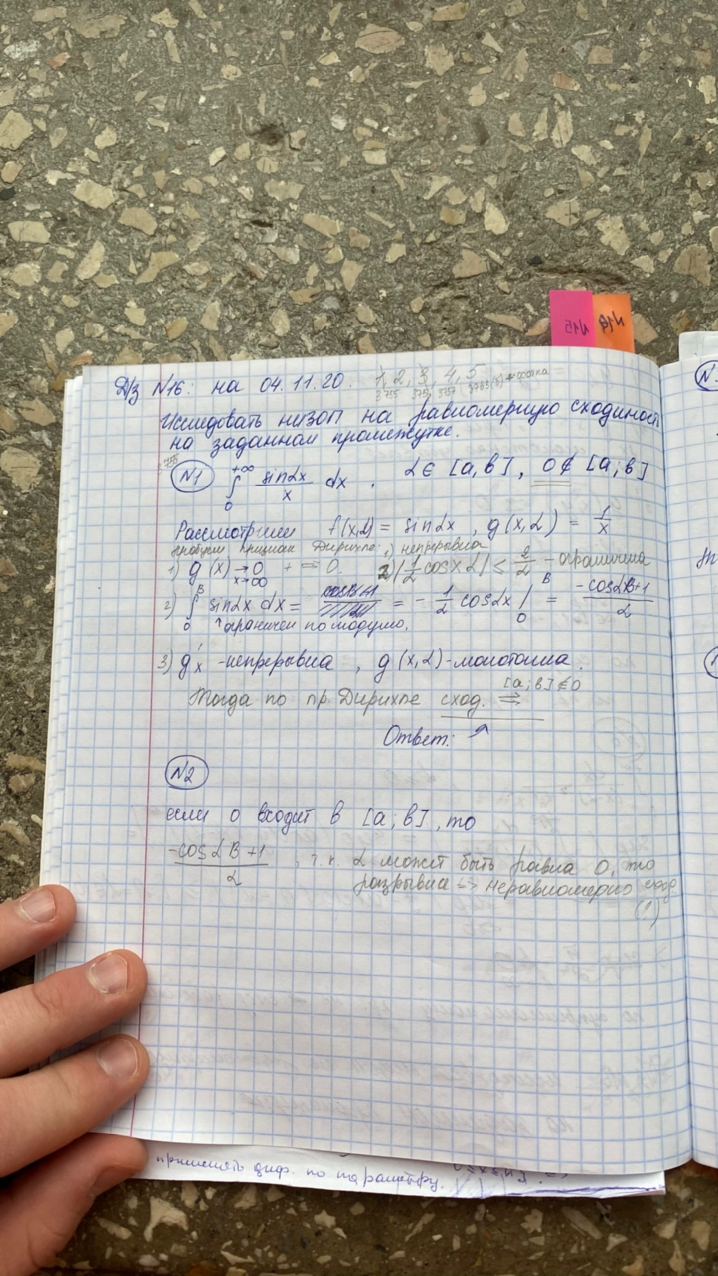 N15
N18
Д/з N16: на 04.11.20. 1, 2, 3, 4, 5
3755
Исследовать НИЗОП на равномерную сходимость
на заданном промежутке.
N1 ∫₀^{+∞} sinαx/x dx. α∈[a,b], 0∉[a;b]
Рассмотрим f(x,α) = sinαx, g(x,α) = 1/x
признак Дирихле: 1) непрерывна
1) g(x) →0 x→∞ 2) |1/α cosxα| ≤ 2/α - ограничена
2) ∫₀^B sinαx dx = = -1/α cosαx |₀^B = (-cosαB+1)/α
↑ ограничен по модулю.
3) g'x - непрерывна, g(x,α) - монотонна.
Тогда по пр. Дирихле сход. ⇉ [a;b]∌0
Ответ: ↗
N2
если 0 входит в [a;b], то
(-cosαB+1)/α, т.к. α может быть равна 0, то
разрывна => неравномерно сход
(!)
применять диф. по параметру.